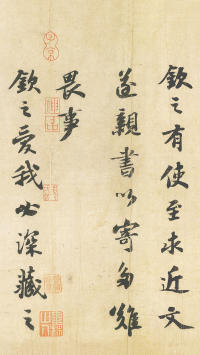 欽之有使至求近文
遂親書以寄多難
畏事
欽之愛我必深藏之